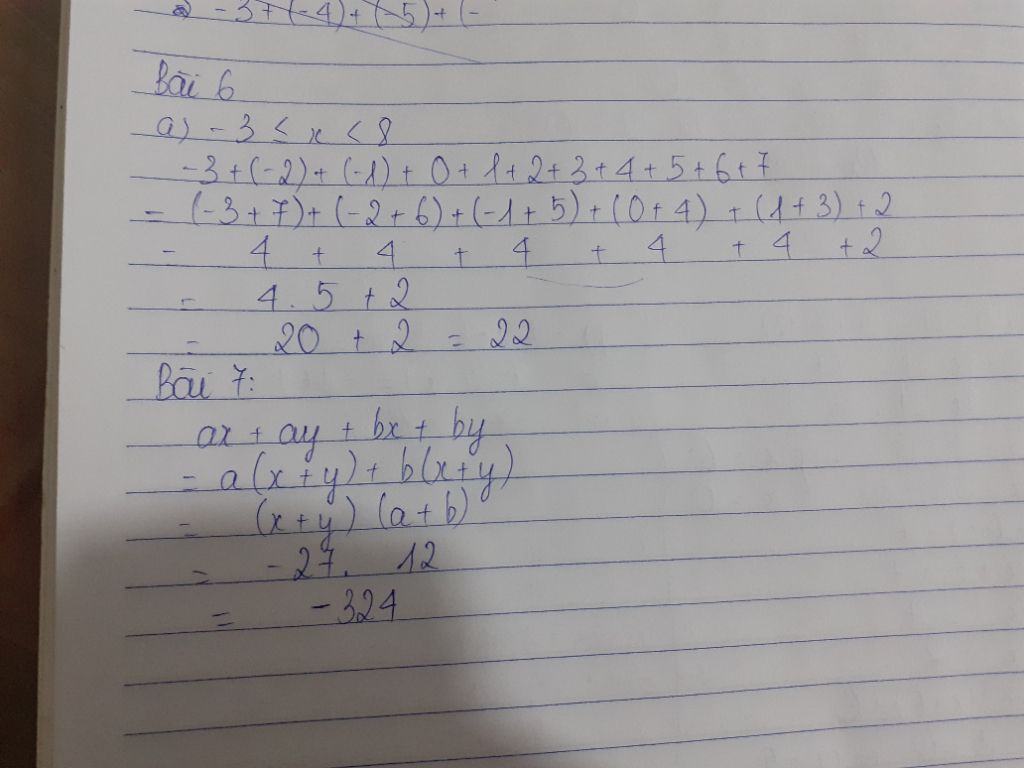 -3+(-4)+(-5)+(-
Bài 6
a) -3 ≤ x < 8
-3+(-2)+(-1)+0+1+2+3+4+5+6+7
= (-3+7)+(-2+6)+(-1+5)+(0+4)+(1+3)+2
= 4 + 4 + 4 + 4 + 4 +2
= 4.5 +2
= 20 + 2 = 22
Bài 7:
ax + ay + bx + by
= a(x+y)+ b(x+y)
= (x+y) (a+b)
= -27. 12
= -324